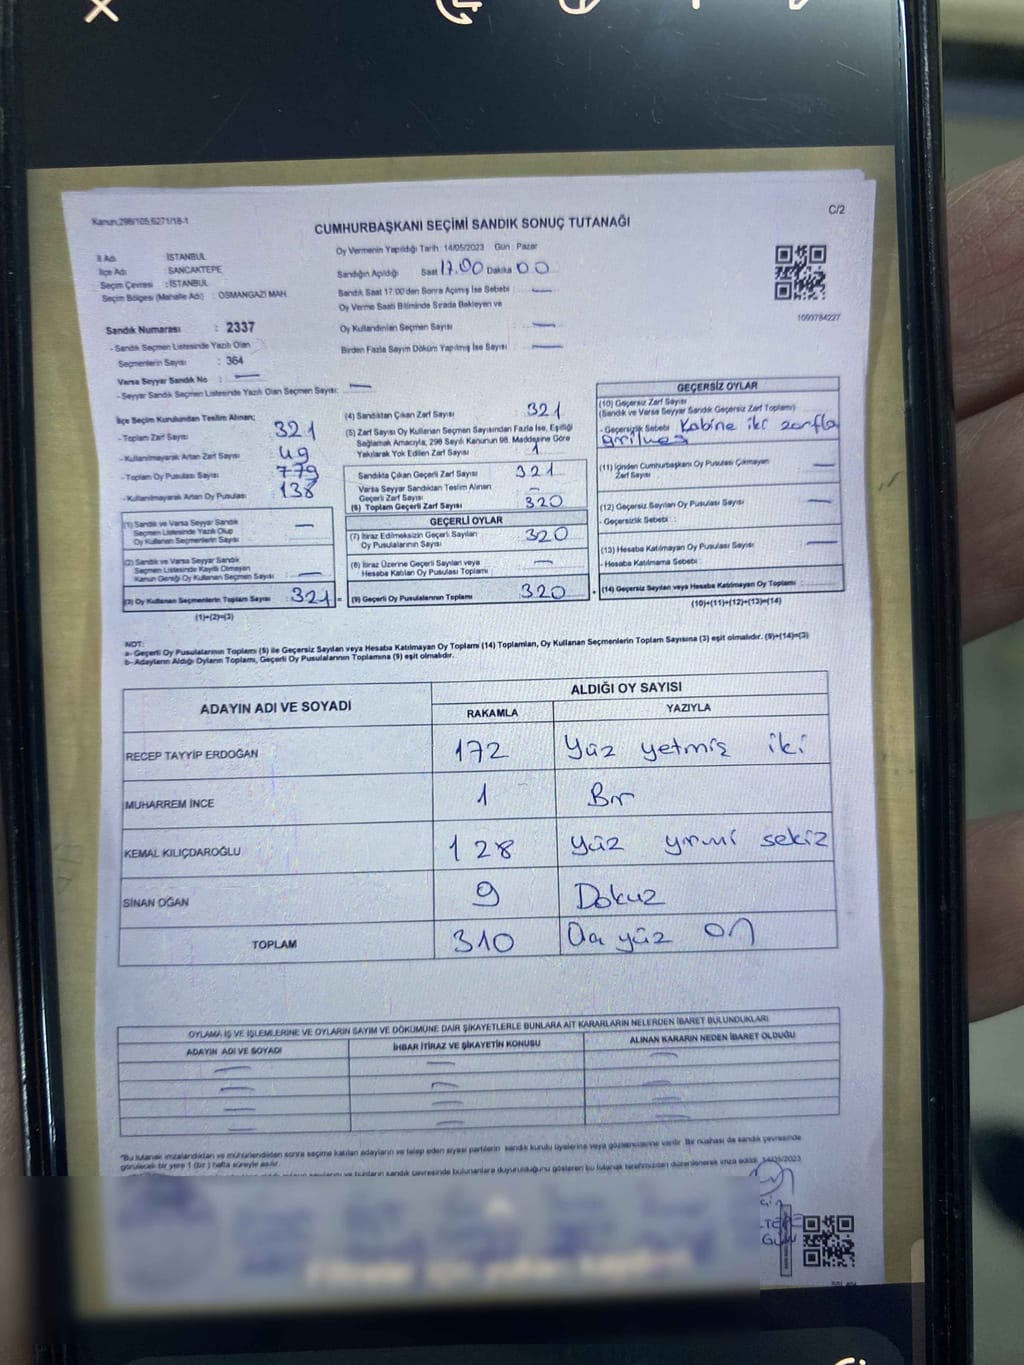 Kanun.298/105,6271/18-1
C/2
CUMHURBAŞKANI SEÇİMİ SANDIK SONUÇ TUTANAĞI
İl Adı : İSTANBUL
İlçe Adı : SANCAKTEPE
Seçim Çevresi : İSTANBUL
Seçim Bölgesi (Mahalle Adı) : OSMANGAZİ MAH.
Oy Vermenin Yapıldığı Tarih 14/05/2023 Gün : Pazar
Sandığın Açıldığı Saat 17.00 Dakika 00
Sandık Saat 17:00'den Sonra Açılmış İse Sebebi : —
Oy Verme Saati Bitiminde Sırada Bekleyen ve
Oy Kullandırılan Seçmen Sayısı : —
Birden Fazla Sayım Döküm Yapılmış İse Sayısı : —
1099784227
Sandık Numarası : 2337
- Sandık Seçmen Listesinde Yazılı Olan
Seçmenlerin Sayısı : 364
Varsa Seyyar Sandık No : —
- Seyyar Sandık Seçmen Listesinde Yazılı Olan Seçmen Sayısı: —
İlçe Seçim Kurulundan Teslim Alınan;
- Toplam Zarf Sayısı : 321
- Kullanılmayarak Artan Zarf Sayısı : 49
- Toplam Oy Pusulası Sayısı : 779
- Kullanılmayarak Artan Oy Pusulası : 138
(1) Sandık ve Varsa Seyyar Sandık
Seçmen Listesinde Yazılı Olup
Oy Kullanan Seçmenlerin Sayısı : —
(2) Sandık ve Varsa Seyyar Sandık
Seçmen Listesinde Kayıtlı Olmayan
Kanun Gereği Oy Kullanan Seçmen Sayısı : —
(3) Oy Kullanan Seçmenlerin Toplam Sayısı : 321 =
(1)+(2)=(3)
(4) Sandıktan Çıkan Zarf Sayısı : 321
(5) Zarf Sayısı Oy Kullanan Seçmen Sayısından Fazla İse, Eşitliği
Sağlamak Amacıyla, 298 Sayılı Kanunun 98. Maddesine Göre
Yakılarak Yok Edilen Zarf Sayısı : 1
Sandıkta Çıkan Geçerli Zarf Sayısı : 321
Varsa Seyyar Sandıktan Teslim Alınan
Geçerli Zarf Sayısı : —
(6) Toplam Geçerli Zarf Sayısı : 320
GEÇERLİ OYLAR
(7) İtiraz Edilmeksizin Geçerli Sayılan
Oy Pusulalarının Sayısı : 320
(8) İtiraz Üzerine Geçerli Sayılan veya
Hesaba Katılan Oy Pusulası Toplamı : —
(9) Geçerli Oy Pusulalarının Toplamı : 320 +
GEÇERSİZ OYLAR
(10) Geçersiz Zarf Sayısı
(Sandık ve Varsa Seyyar Sandık Geçersiz Zarf Toplamı)
- Geçersizlik Sebebi : Kabine iki zarfla
(11) İçinden Cumhurbaşkanı Oy Pusulası Çıkmayan
Zarf Sayısı : —
(12) Geçersiz Sayılan Oy Pusulası Sayısı : —
- Geçersizlik Sebebi :
(13) Hesaba Katılmayan Oy Pusulası Sayısı : —
- Hesaba Katılmama Sebebi :
(14) Geçersiz Sayılan veya Hesaba Katılmayan Oy Toplamı :
(10)+(11)+(12)+(13)=(14)
NOT:
a- Geçerli Oy Pusulalarının Toplamı (9) ile Geçersiz Sayılan veya Hesaba Katılmayan Oy Toplamı (14) Toplamları, Oy Kullanan Seçmenlerin Toplam Sayısına (3) eşit olmalıdır. (9)+(14)=(3)
b- Adayların Aldığı Oyların Toplamı, Geçerli Oy Pusulalarının Toplamına (9) eşit olmalıdır.
ADAYIN ADI VE SOYADI
ALDIĞI OY SAYISI
RAKAMLA YAZIYLA
RECEP TAYYİP ERDOĞAN 172 Yüz yetmiş iki
MUHARREM İNCE 1 Bır
KEMAL KILIÇDAROĞLU 128 yüz yırmi sekiz
SİNAN OĞAN 9 Dokuz
TOPLAM 310 yüz on
OYLAMA İŞ VE İŞLEMLERİNE VE OYLARIN SAYIM VE DÖKÜMÜNE DAİR ŞİKAYETLERLE BUNLARA AİT KARARLARIN NELERDEN İBARET BULUNDUKLARI
ADAYIN ADI VE SOYADI İHBAR İTİRAZ VE ŞİKAYETİN KONUSU ALINAN KARARIN NEDEN İBARET OLDUĞU
"Bu tutanak imzalandıktan ve mühürlendikten sonra seçime katılan adayların ve talep eden siyasi partilerin sandık kurulu üyelerine veya gözlemcilerine verilir. Bir nüshası da sandık çevresinde
görülecek bir yere 1 (bir) hafta süreyle asılır.